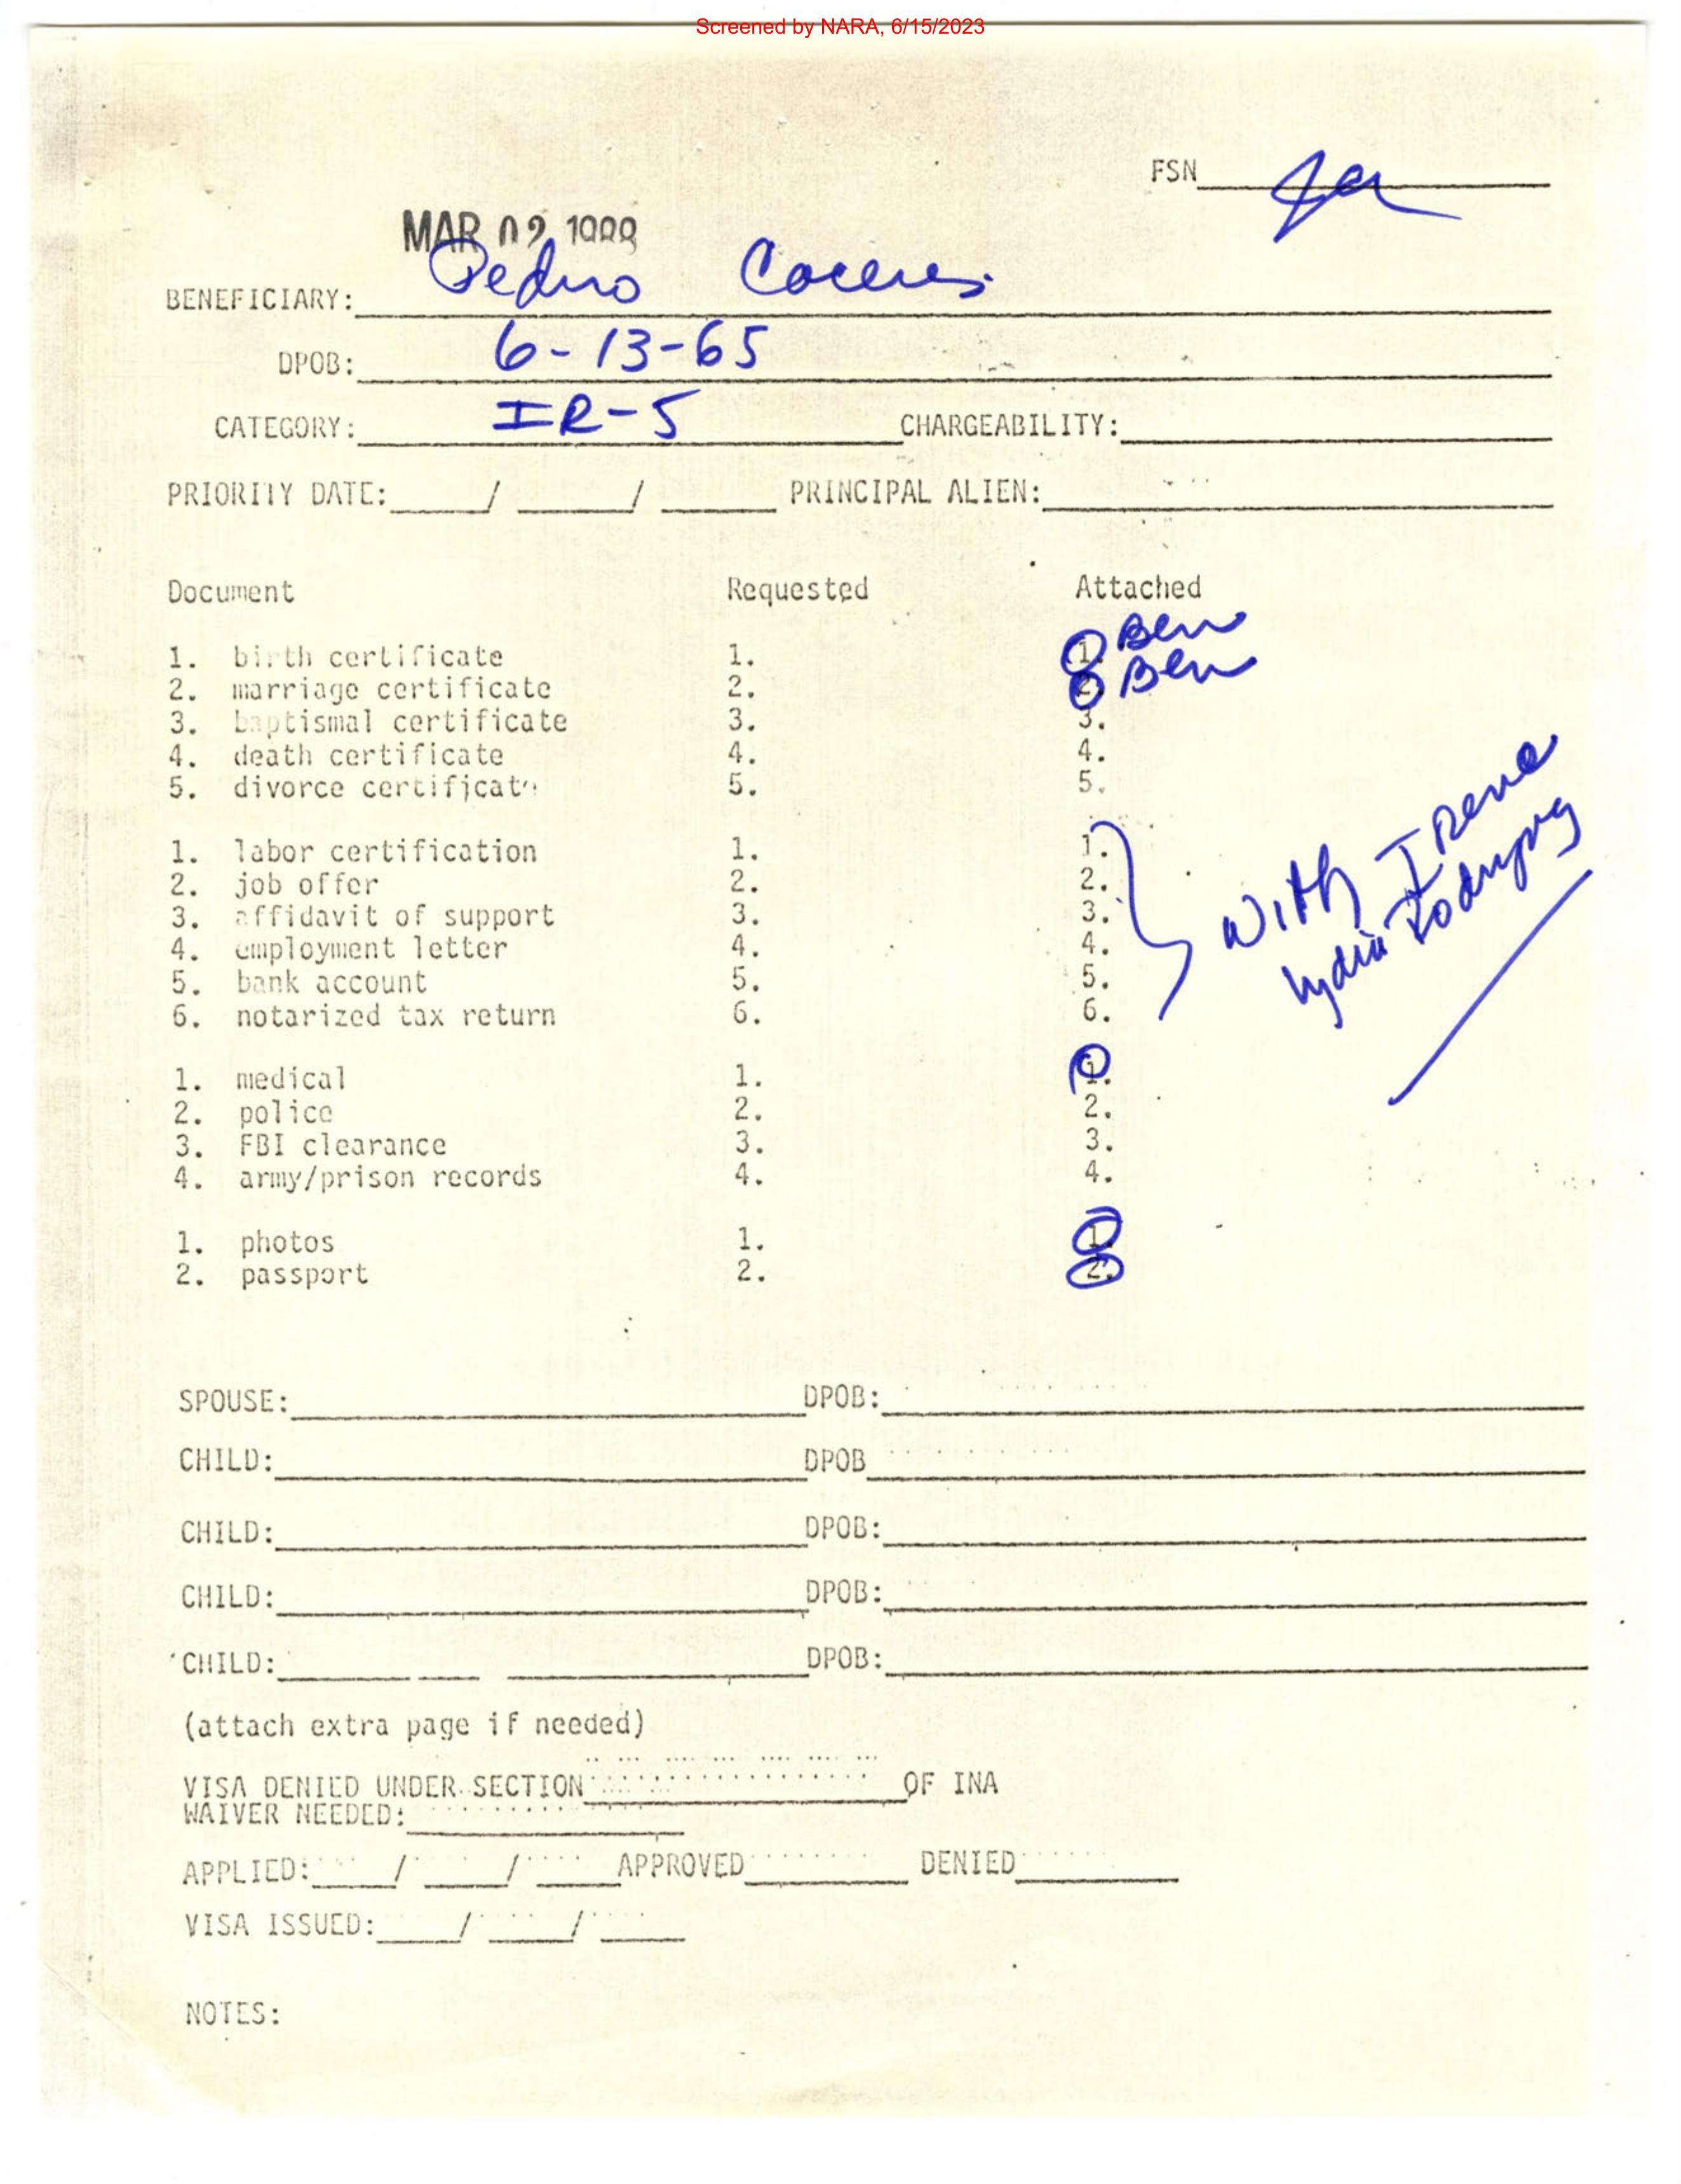 Screened by NARA, 6/15/2023
FSN
MAR 02
BENEFICIARY: Pedro Caceres
DPOB: 6-13-65
CATEGORY: IR-5 CHARGEABILITY:
PRIORITY DATE: / / PRINCIPAL ALIEN:
Document Requested Attached
1. birth certificate 1. 1. Ben
2. marriage certificate 2. 2. Ben
3. baptismal certificate 3. 3.
4. death certificate 4. 4.
5. divorce certificate 5. 5.
1. labor certification 1. 1.
2. job offer 2. 2.
3. affidavit of support 3. 3.
4. employment letter 4. 4.
5. bank account 5. 5.
6. notarized tax return 6. 6.
With Irene
Lydia
1. medical 1. 1.
2. police 2. 2.
3. FBI clearance 3. 3.
4. army/prison records 4. 4.
1. photos 1. 1.
2. passport 2. 2.
SPOUSE: DPOB:
CHILD: DPOB
CHILD: DPOB:
CHILD: DPOB:
CHILD: DPOB:
(attach extra page if needed)
VISA DENIED UNDER SECTION OF INA
WAIVER NEEDED:
APPLIED: / / APPROVED DENIED
VISA ISSUED: / /
NOTES: